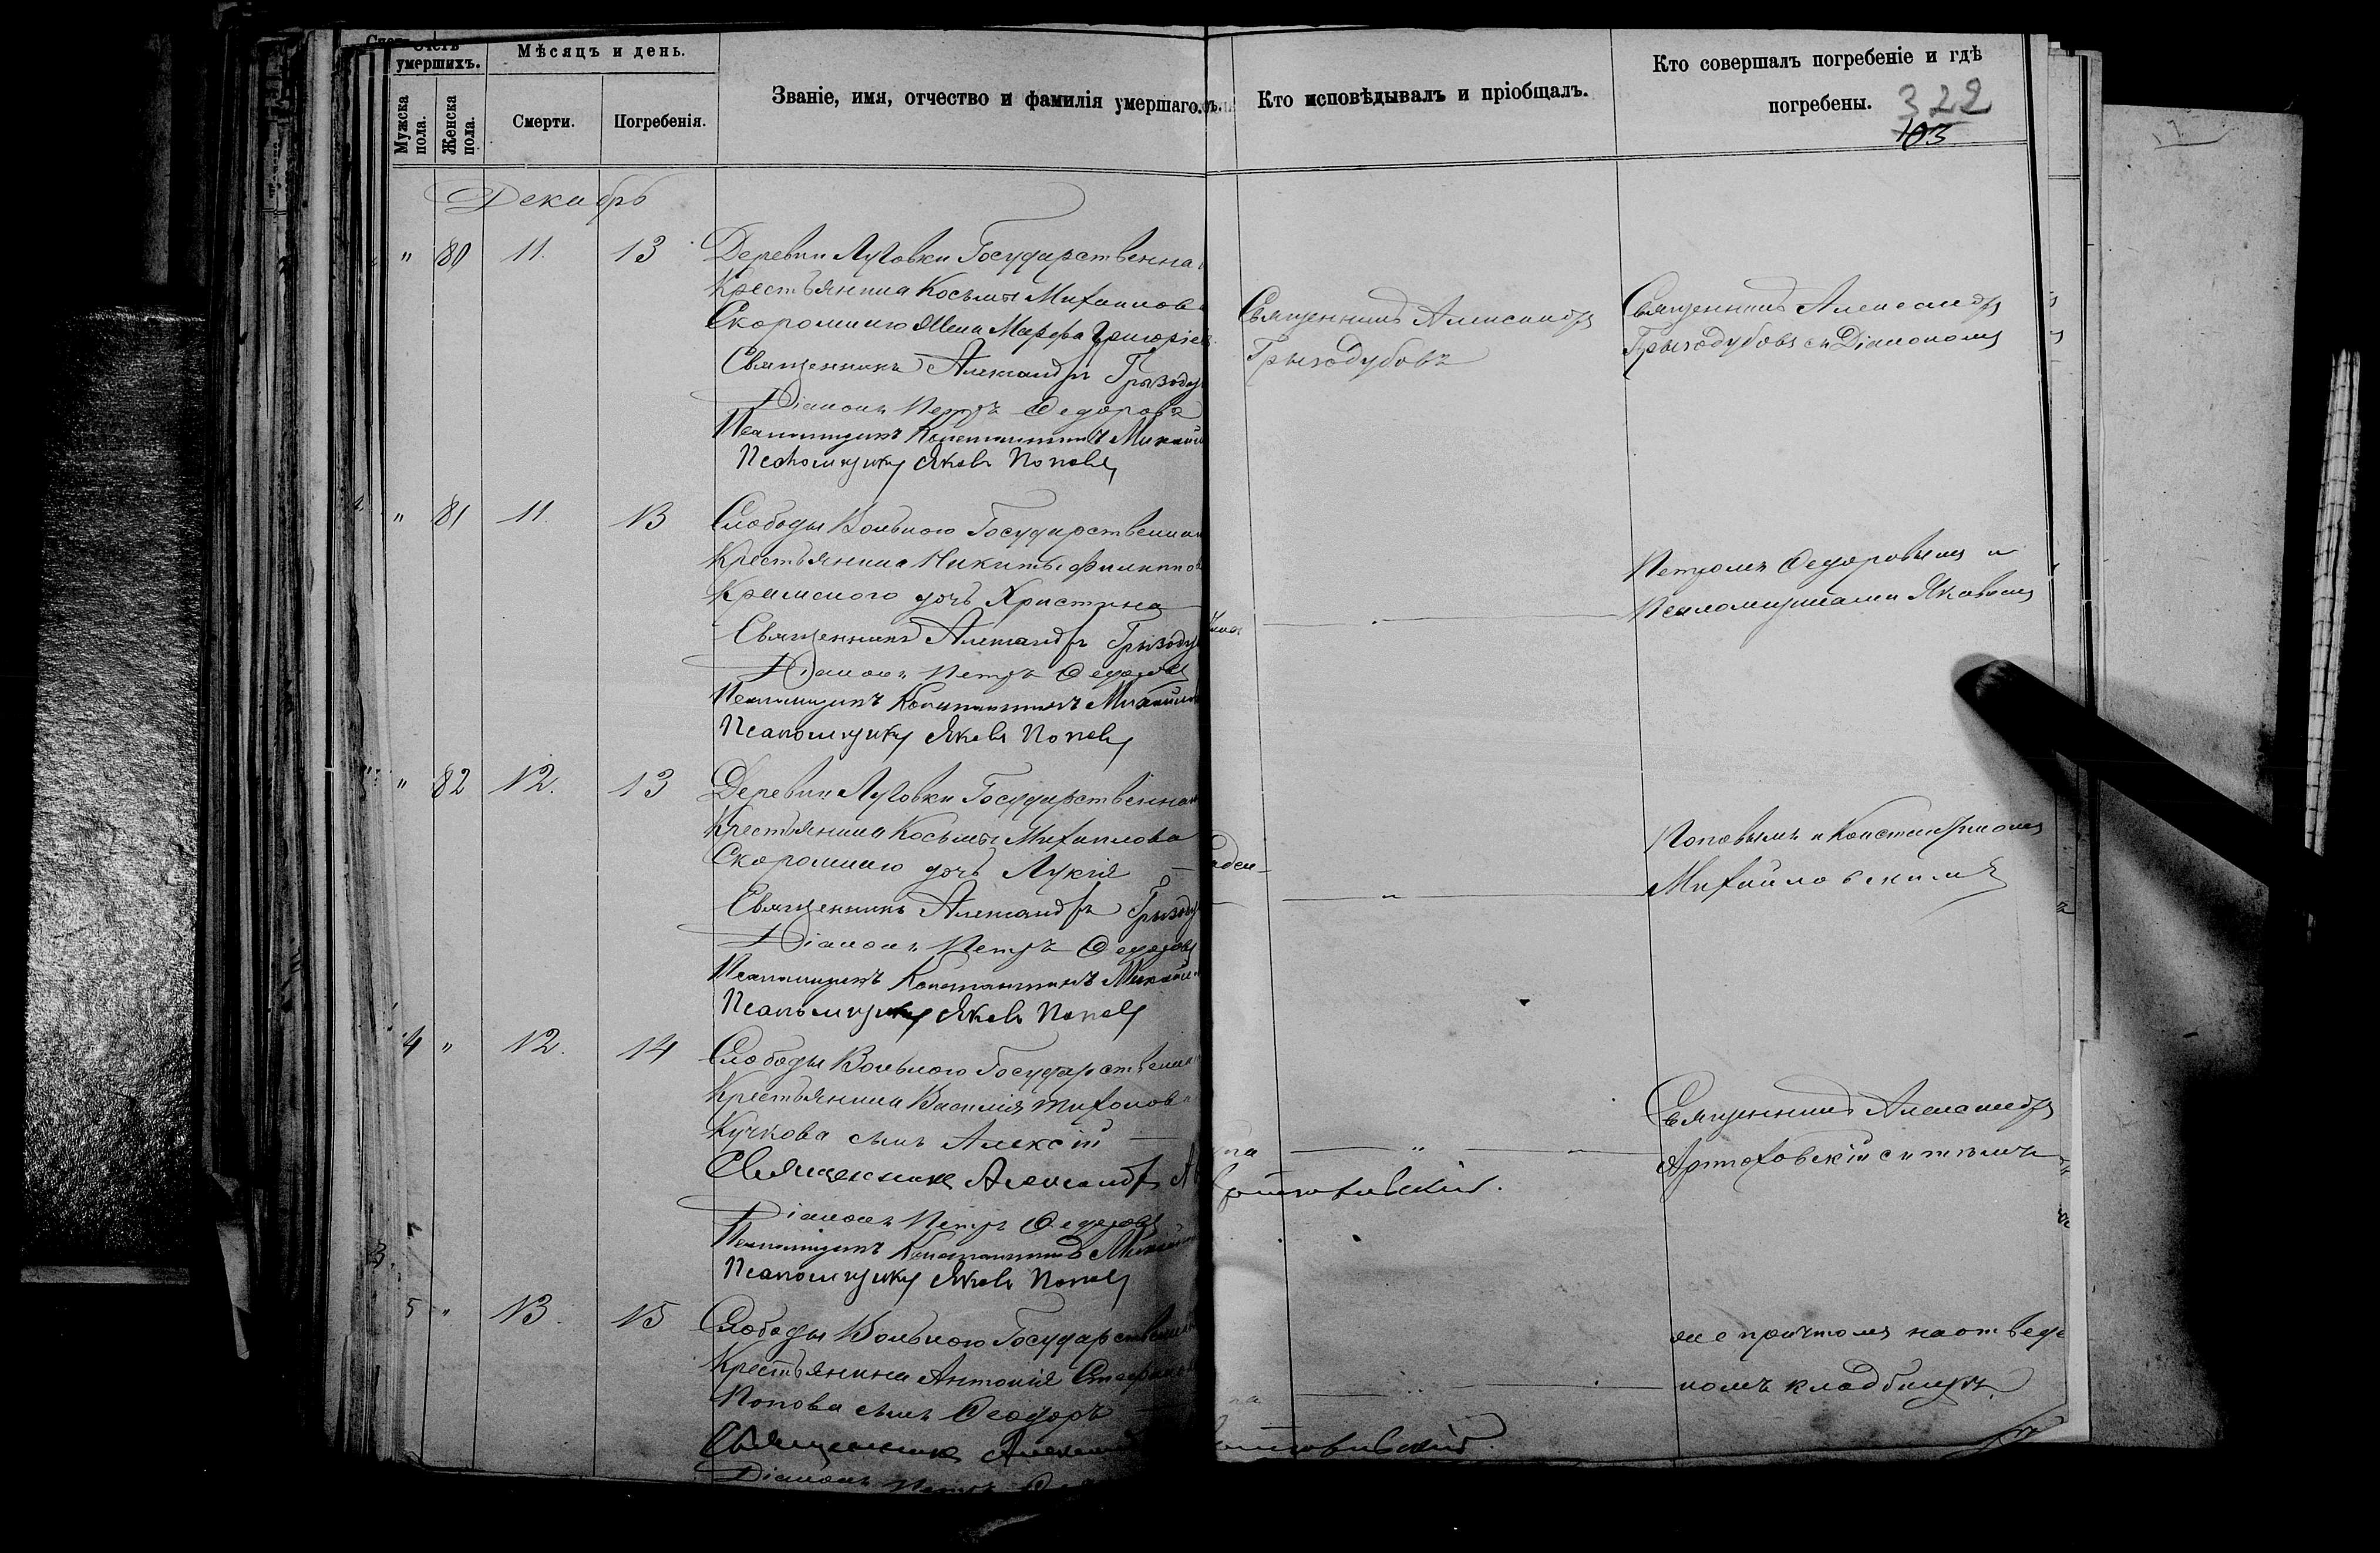 Счетъ умершихъ.
Мѣсяцъ и день.
Мужска пола.
Женска пола.
Смерти.
Погребенія.
Званіе, имя, отчество и фамилія умершаго.
Кто исповѣдывалъ и пріобщалъ.
Кто совершалъ погребеніе и гдѣ
погребены.
322
103
Декабрь
" 80 11. 13
Деревни Луговки Государственна
Крестьянина Косьмы Михаилов
Скоромнаго жена Марфа Григоріев
Священникъ Александръ Грызоду
Діаконъ Петръ Ѳедоровъ
Псаломщикъ Константинъ Михай
Псаломщикъ Яковъ Поповъ
Священникъ Александръ
Грызодубовъ
Священникъ Александръ
Грызодубовъ съ Діакономъ
" 81 11. 13
Слободы Вольного Государственна
Крестьянина Никиты Филиппов
Крамского дочь Христина
Священникъ Александръ Грызоду
Діаконъ Петръ Ѳедоровъ
Псаломщикъ Константинъ Михайло
Псаломщикъ Яковъ Поповъ
Петромъ Ѳедоровымъ и
Псаломщиками Яковомъ
" 82 12. 13
Деревни Луговки Государственна
Крестьянина Косьмы Михаилова
Скоромнаго дочь Лукія
Священникъ Александръ Грызоду
Діаконъ Петръ Ѳедоровъ
Псаломщикъ Константинъ Михай
Псаломщикъ Яковъ Поповъ
Поповымъ и Константиномъ
Михайловскимъ
4 " 12. 14
Слободы Вольного Государствен
Крестьянина Василія Тихонов
Кучкова сынъ Алексій
Священникъ Александръ
Діаконъ Петръ Ѳедоровъ
Псаломщикъ Константинъ Михай
Псаломщикъ Яковъ Поповъ
Священникъ Александръ
съ тѣмъ
5 " 13. 15
Слободы Вольного Государствен
Крестьянина Антонія Стефанов
Попова сынъ Ѳеодоръ
Священникъ
Діаконъ Петръ
же причтомъ на отведе
номъ кладбищѣ.